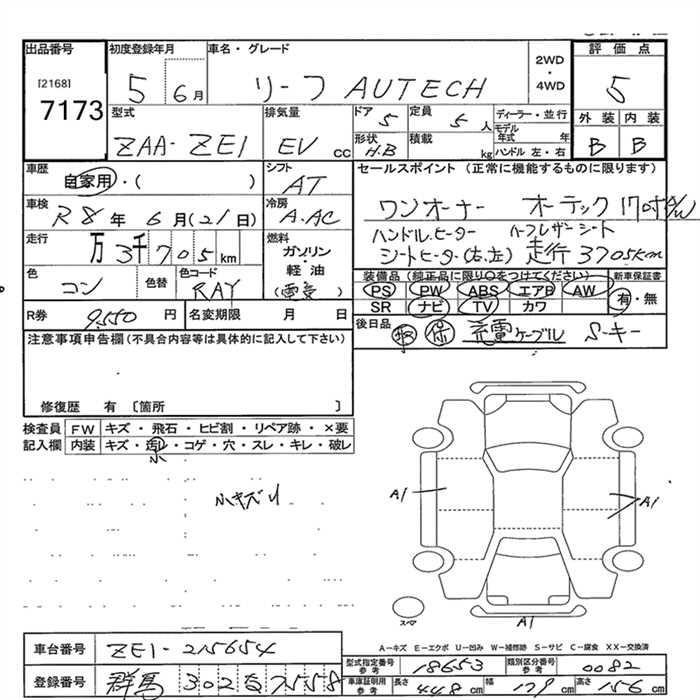 出品番号 初度登録年月 車名・グレード 評価点
[2168] 7173 5 6月 リーフ AUTECH 2WD・4WD 5
型式 排気量 ドア 5 定員 5人 ディーラー・並行 外装 内装
ZAA-ZE1 EV cc 形状 H.B 積載 kg モデル年式 年 B B
ハンドル 左・右
車歴 自家用・( ) シフト AT セールスポイント (正常に機能するものに限ります)
車検 R8年 6月(21日) 冷房 A.AC ワンオーナー オーテック17吋A/W
走行 万3千705km 燃料 ガソリン・軽油 ハンドルヒーター ハーフレザーシート
シートヒーター(右,左) 走行3705km
色 コン 色替 色コード RAY 装備品(純正品に限り○をつけてください) 新車保証書
PS PW ABS エアB AW 有・無
SR ナビ TV カワ
R券 9,550円 名変期限 月 日 後日品 取 保 充電ケーブル S-キー
注意事項申告欄(不具合内容等は具体的に記入して下さい)
修復歴 有 〔箇所 〕
検査員 FW キズ・飛石・ヒビ割・リペア跡・×要
記入欄 内装 キズ・汚レ・コゲ・穴・スレ・キレ・破レ
小
小キズU
A1 A1
スペア
A1
A-キズ E-エクボ U-凹み W-補修跡 S-サビ C-腐食 XX-交換済
車台番号 ZE1-215654 型式指定番号 参考 18653 類別区分番号 参考 0082
登録番号 群馬 302 7558 車庫証明用 参考 長さ 448cm 幅 179cm 高さ 156cm